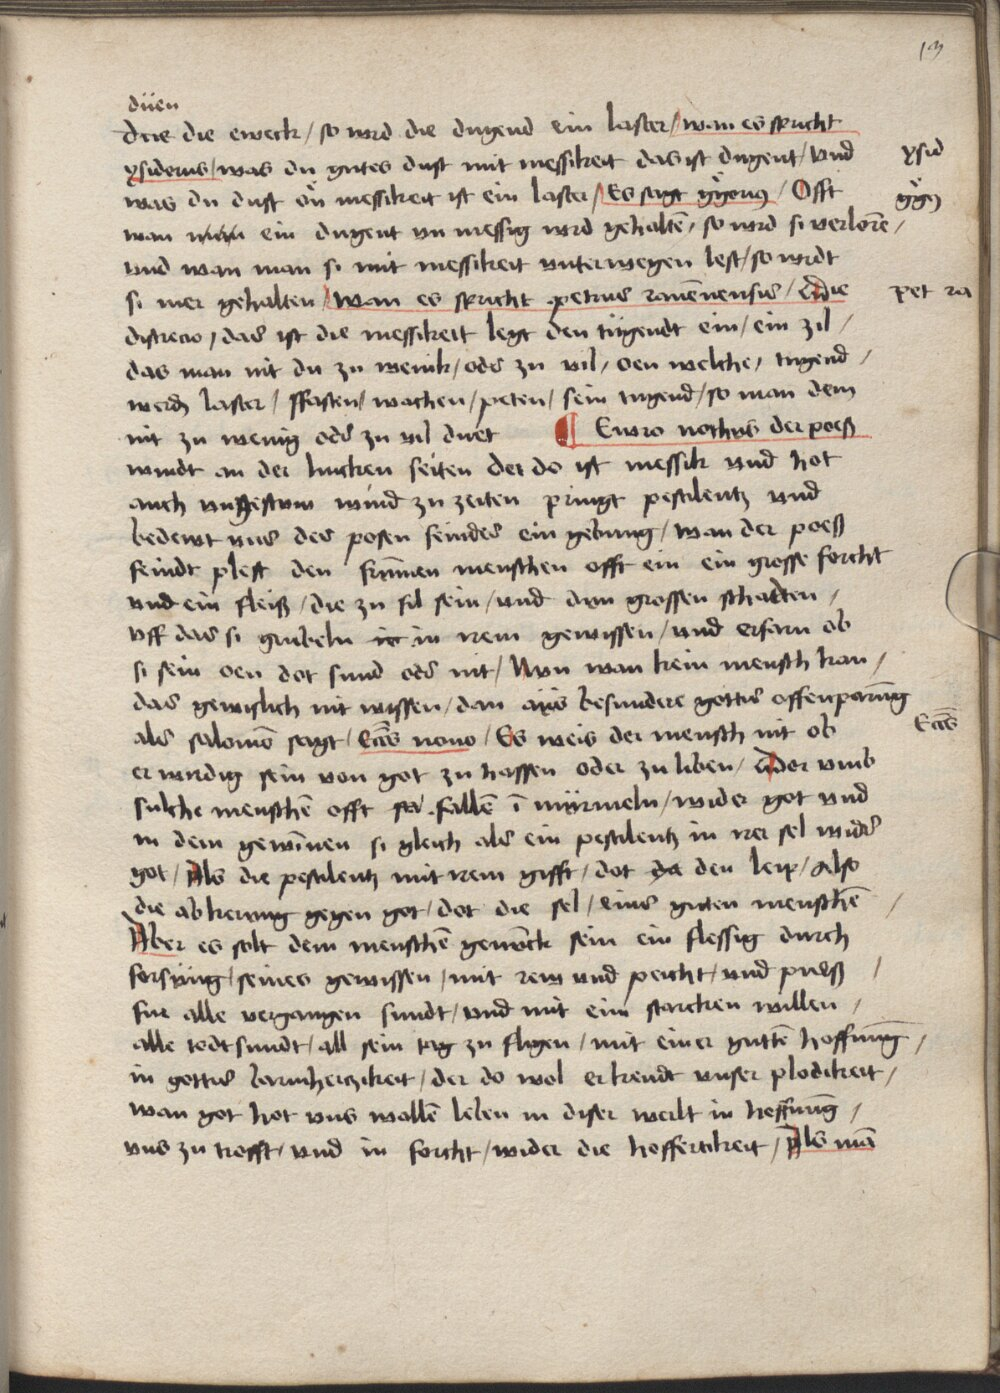 13
düen
drie die eweck / so wrd die dugend ein laster / wan es spricht
ysiderus / was du gutes dust mit messikeit das ist dugent / vnd
ysid
was du dust on messikeit ist ein laster / Es sagt gͦgorius / Offt
gͦgꝰ
wan ein dugent vn messig wrd gehaltē / so wrd si verlorē /
vnd wan man si mit messikeit vnterwegen lest / so wrdt
si mer gehalten / wan es spricht petrus rauēnensis / Die
Pet ra
discrecio / das ist die messikeit legt den tugendt ein / ein zil /
das man nit du zu wenik / oder zu vil / oen welche / tugend /
werdn laster / ffasten / wachen / peten / sein tugend / so man dem
nit zu wenig oder zu vil duet ¶ Ewro nothus der poeß
windt an der lincken seiten der do ist messik vnd hot
auch vngestum wind zu zeiten pringt pestilentz vnd
bedewt vns des posen feindes ein gebung / wan der poeß
feindt plest den frumen menschen offt ein ein grosse forcht
vnd ein fleiß / die zu fil sein / vnd dem grossen schadten /
vff das si grubeln in irem gewissen / vnd erfarn ob
si sein oen dot sund oder nit / Nvn wan kein mensch kan /
das gewislich nit wissen / dan aus besundere gottes offenparūg
als salomō sagt / Eccēs nono / Es weis der mensch nit ob
Eccēs
er wirdig sein von got zu hassen oder zu liben / Dor vmb
sulche menschē offt fallē ī murmeln / wider got vnd
in dem gewinnen si gleich als ein pestilentz in irer sel wider
got / Als die pestilentz mit irem gifft / dot den leip / Also
die abkerung gegen got / dot die sel / eins guten menschē /
Aber es solt dem menschē genvck sein ein flessig durch
forsvng / seines gewissen / mit rew vnd peicht / vnd pueß /
fur alle vergangen sundt / vnd mit eim starcken willen /
alle todtsundt / all sein tag zu fligen / mit einer guttē hoffnūng /
in gottes barmherczikeit / der do wol erkendt vnser plodikeit /
wan got hot vns wollē leben in diser werlt in hoffnūg /
vns zu trosst / vnd in forcht / wider die hoffertikeit / Als mā